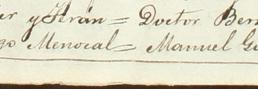 y Teran = Doctor Ber
go Menocal = Manuel G